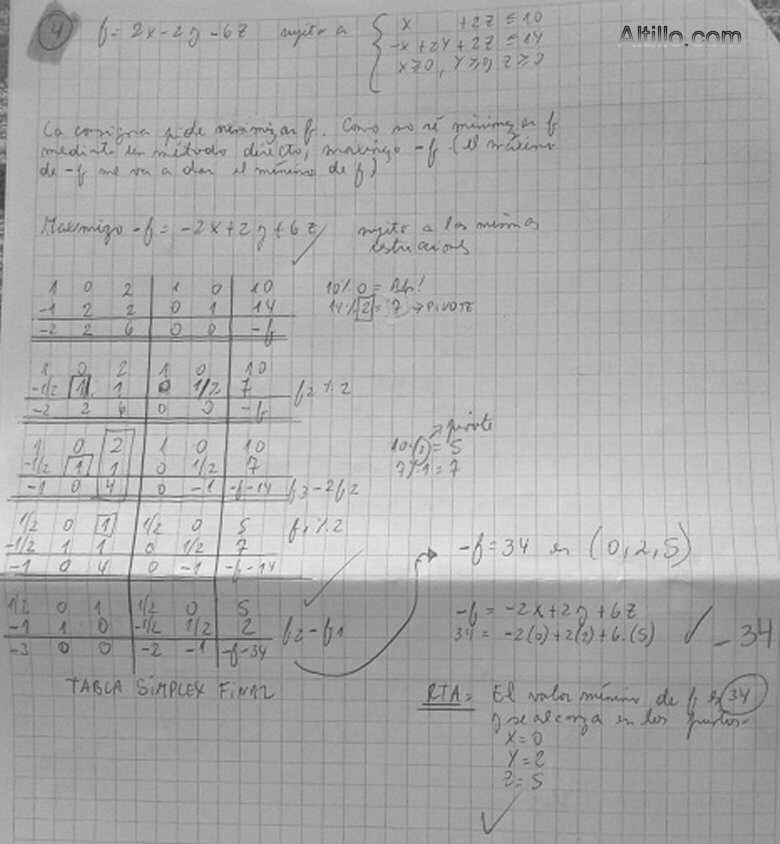 4) f = 2x - 2y - 6z sujeto a { x + 2z ≤ 10
-x + 2y + 2z ≤ 14
x ≥ 0, y ≥ 0, z ≥ 0
Altillo.com
La consigna pide minimizar f. Como no sé minimizar f
mediante un método directo, maximizo -f (el máximo
de -f me va a dar el mínimo de f)
Maximizo -f = -2x + 2y + 6z sujeto a las mismas
restricciones
1 0 2 | 1 0 | 10 10 % 0 =
-1 2 2 | 0 1 | 14 14 % 2 = 7 → PIVOTE
-2 2 6 | 0 0 | -f
1 0 2 | 1 0 | 10
-1/2 1 1 | 0 1/2 | 7 f2 % 2
-2 2 6 | 0 0 | -f
→ pivote
1 0 2 | 1 0 | 10 10 % 2 = 5
-1/2 1 1 | 0 1/2 | 7 7 % 1 = 7
-1 0 4 | 0 -1 | -f-14 f3 - 2f2
1/2 0 1 | 1/2 0 | 5 f1 % 2
-1/2 1 1 | 0 1/2 | 7
-1 0 4 | 0 -1 | -f-14
→ -f = 34 en (0, 2, 5)
1/2 0 1 | 1/2 0 | 5
-1 1 0 | -1/2 1/2 | 2 f2 - f1
-3 0 0 | -2 -1 | -f-34
-f = -2x + 2y + 6z
34 = -2(0) + 2(2) + 6.(5) ✓ -34
TABLA SIMPLEX FINAL
RTA = El valor mínimo de f es 34
y se alcanza en los puntos.
x = 0
y = 2
z = 5